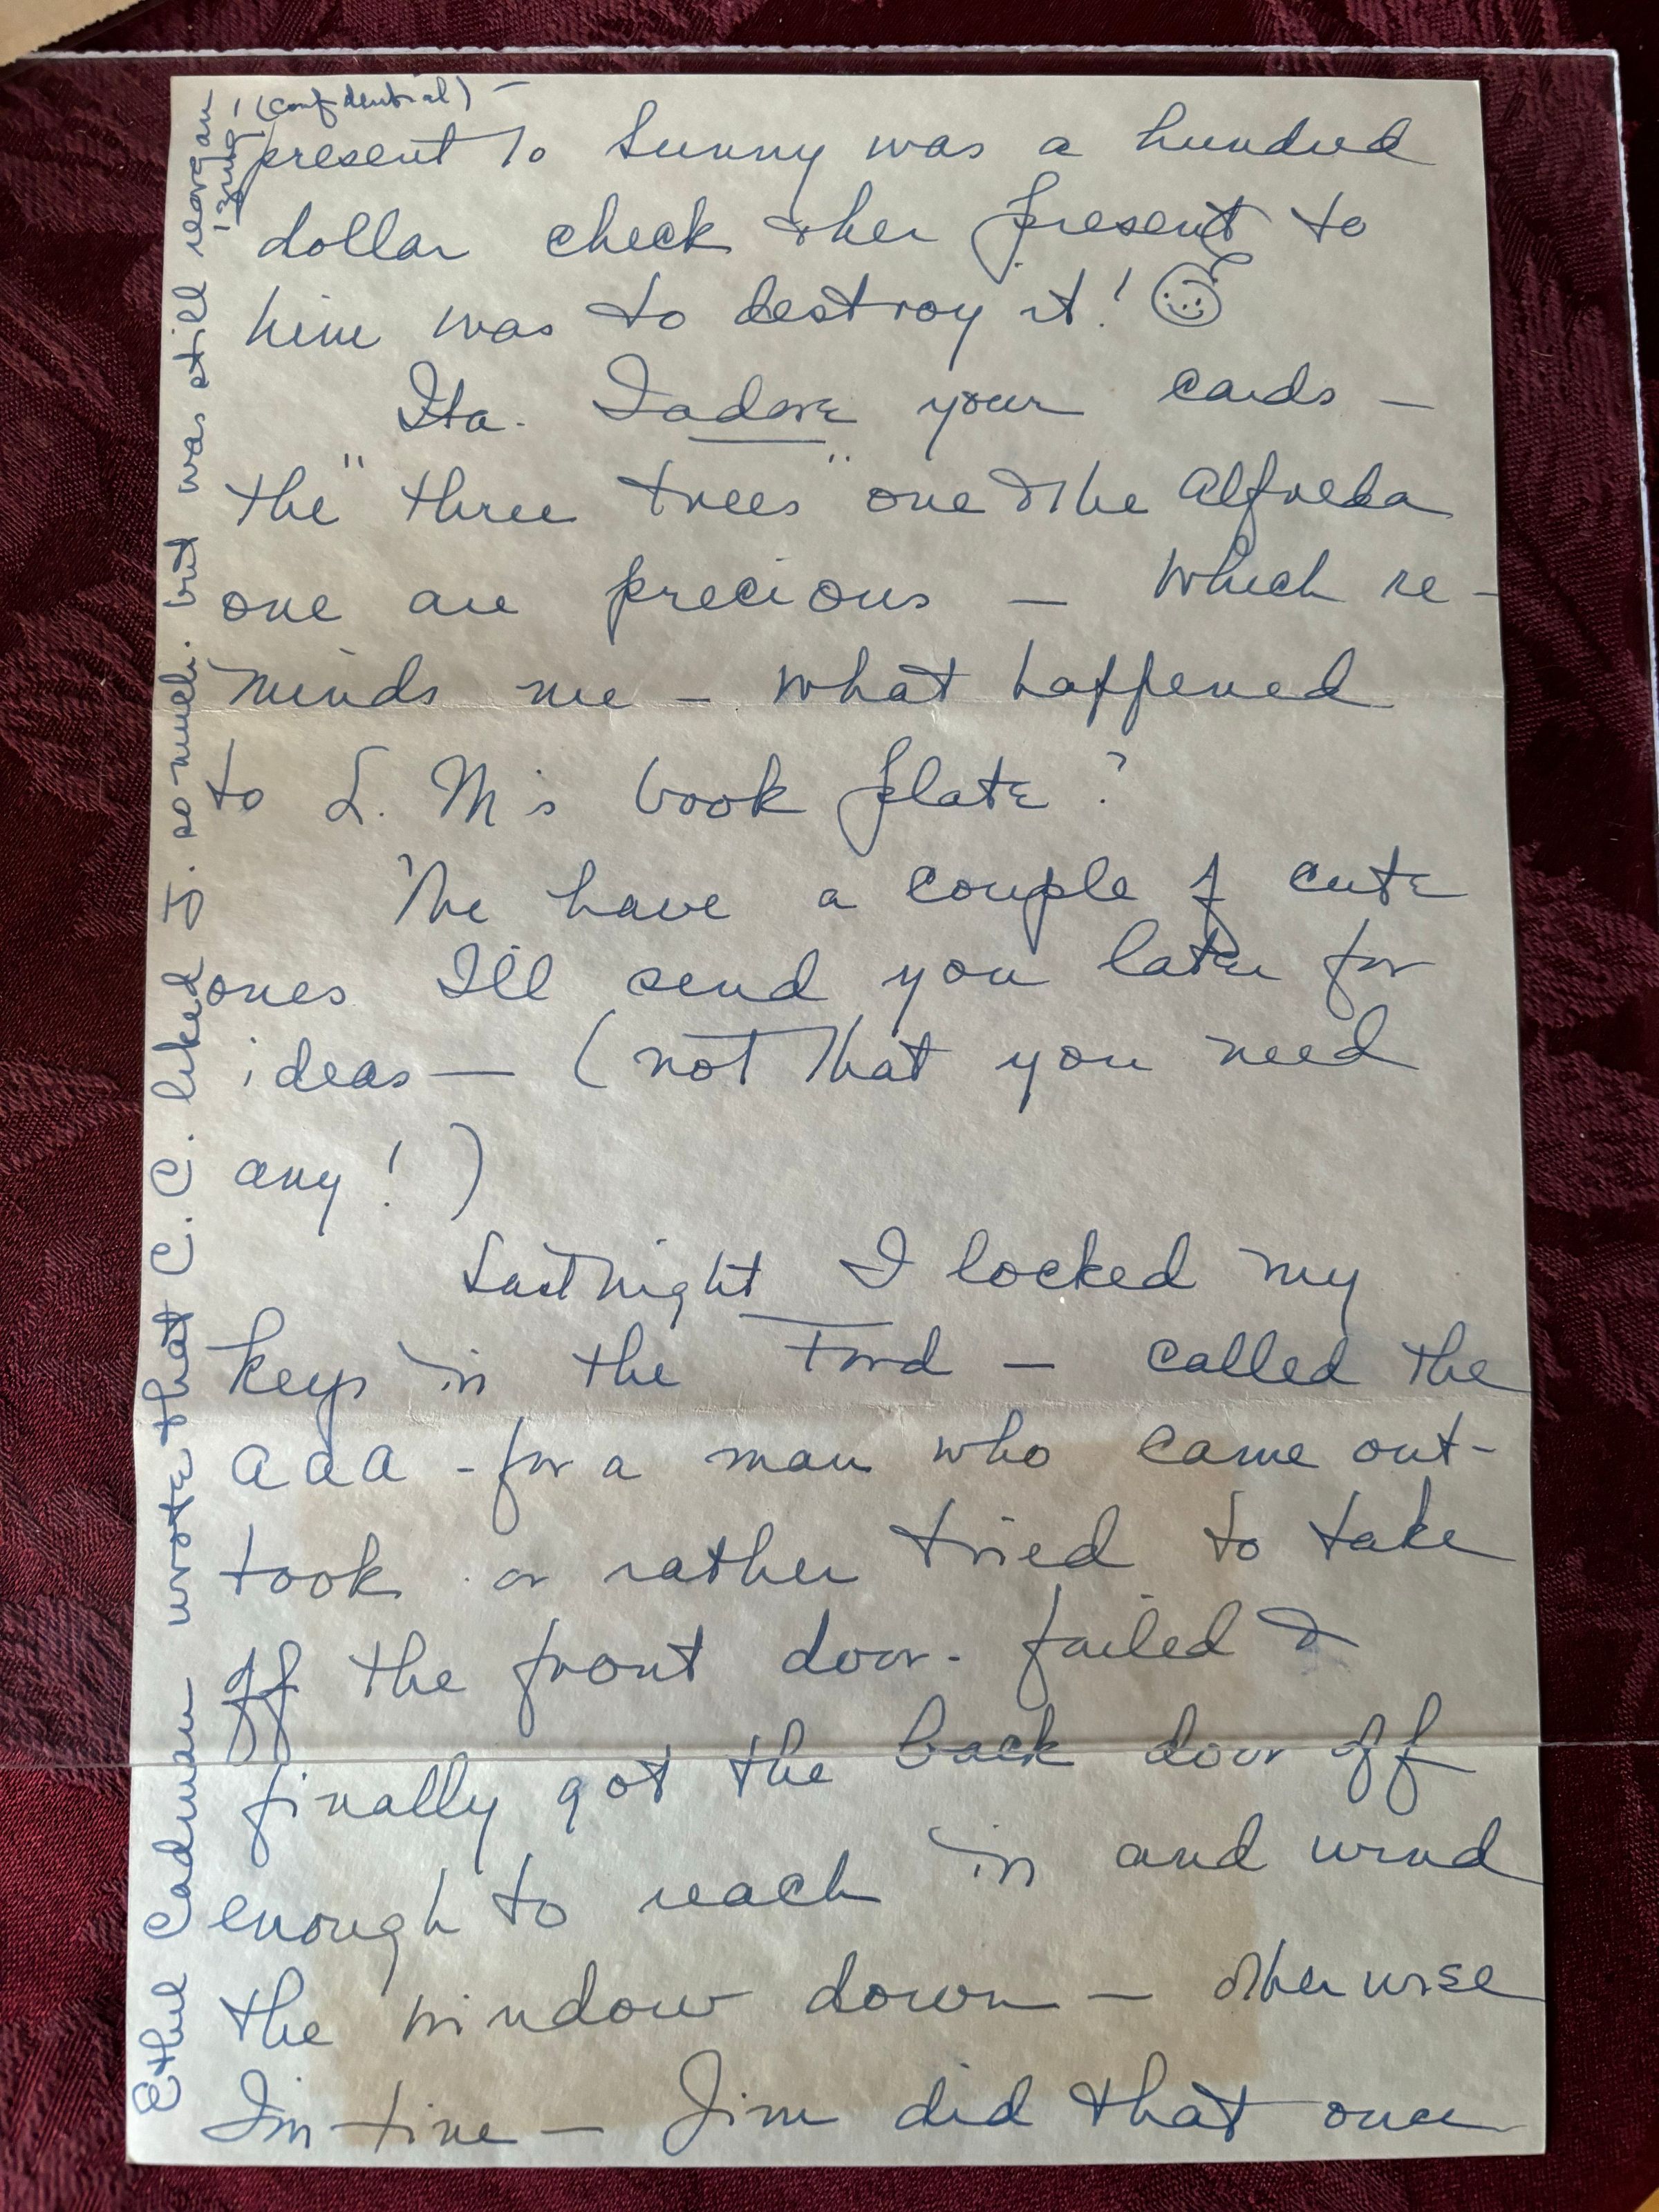 (confidential) –
present to Sunny was a hundred
dollar check & her present to
him was to destroy it!
Ita. I adore your cards –
the "three trees" one & the Alfreda
one are precious – which re-
minds me – what happened
to L. M's book plate?
We have a couple of cute
ones I'll send you later for
ideas – (not that you need
any!)
Last night I locked my
keys in the Ford – called the
AAA - for a man who came out -
took or rather tried to take
off the front door - failed &
finally got the back door off
enough to reach in and wind
the window down – otherwise
I'm fine – Jim did that once
Ethel Cadman wrote that C. C. liked J. so much. but was still reorgan
izing!